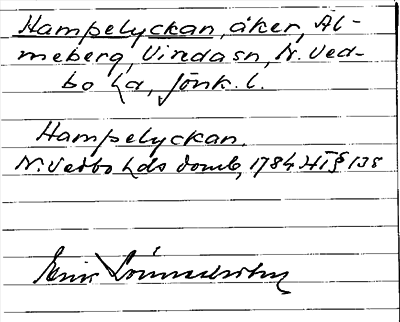 Hampelyckan, åker, Äl-
meberg, Vireda sn, N. Ved-
bo hd, Jönk. l.
Hampelyckan.
N. Vedbo hds domb, 1784 HT § 138
Erik